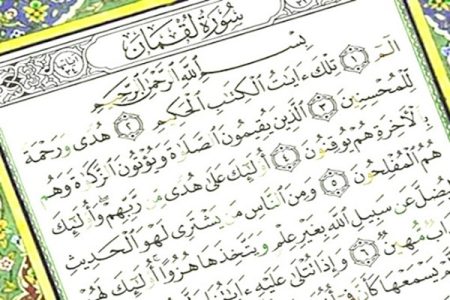 سُورَةُ لُقْمَانَ
بِسْمِ اللَّهِ الرَّحْمَٰنِ الرَّحِيمِ
الٓمٓ ١ تِلْكَ ءَايَٰتُ الْكِتَٰبِ الْحَكِيمِ ٢ هُدًى وَرَحْمَةً
لِّلْمُحْسِنِينَ ٣ الَّذِينَ يُقِيمُونَ الصَّلَوٰةَ وَيُؤْتُونَ الزَّكَوٰةَ وَهُم
بِالْأَخِرَةِ هُمْ يُوقِنُونَ ٤ أُو۟لَٰٓئِكَ عَلَىٰ هُدًى مِّن رَّبِّهِمْ وَأُو۟لَٰٓئِكَ
هُمُ الْمُفْلِحُونَ ٥ وَمِنَ النَّاسِ مَن يَشْتَرِى لَهْوَ الْحَدِيثِ
لِيُضِلَّ عَن سَبِيلِ اللَّهِ بِغَيْرِ عِلْمٍ وَيَتَّخِذَهَا هُزُوًا أُو۟لَٰٓئِكَ لَهُمْ
مُّهِينٌ ٦ وَإِذَا تُتْلَىٰ عَلَيْهِ ءَايَٰتُنَا
لَّمْ يَسْمَعْهَا كَأَنَّ